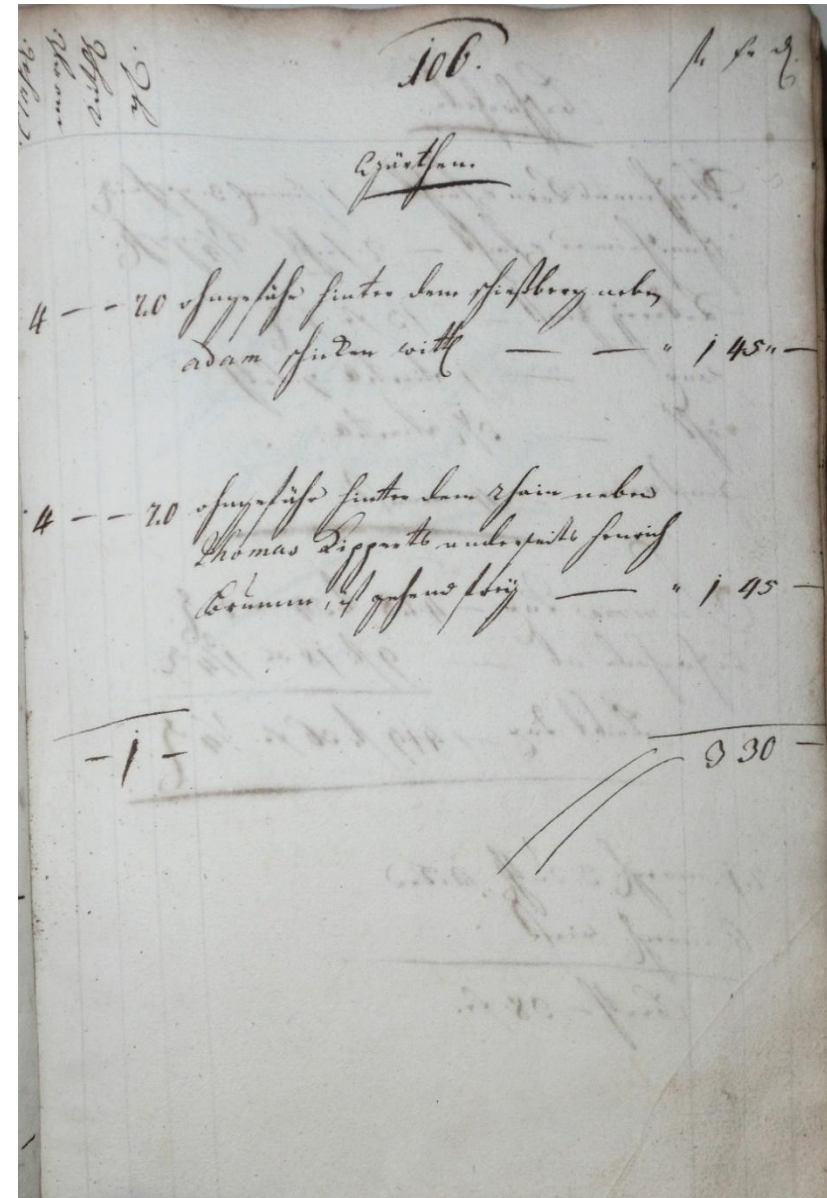 106.
fl. kr. d.
Gärthen.
4 — — 20 ohngefähr hinter dem schießberg neben
adam schicken witt — — " 1 45 " —
4 — — 20 ohngefähr hinter dem rhain neben
Thomas Ripperts anderseits henrich
Brumm, ist zehend frey — " 1 45 —
— 1 —
3 30 —